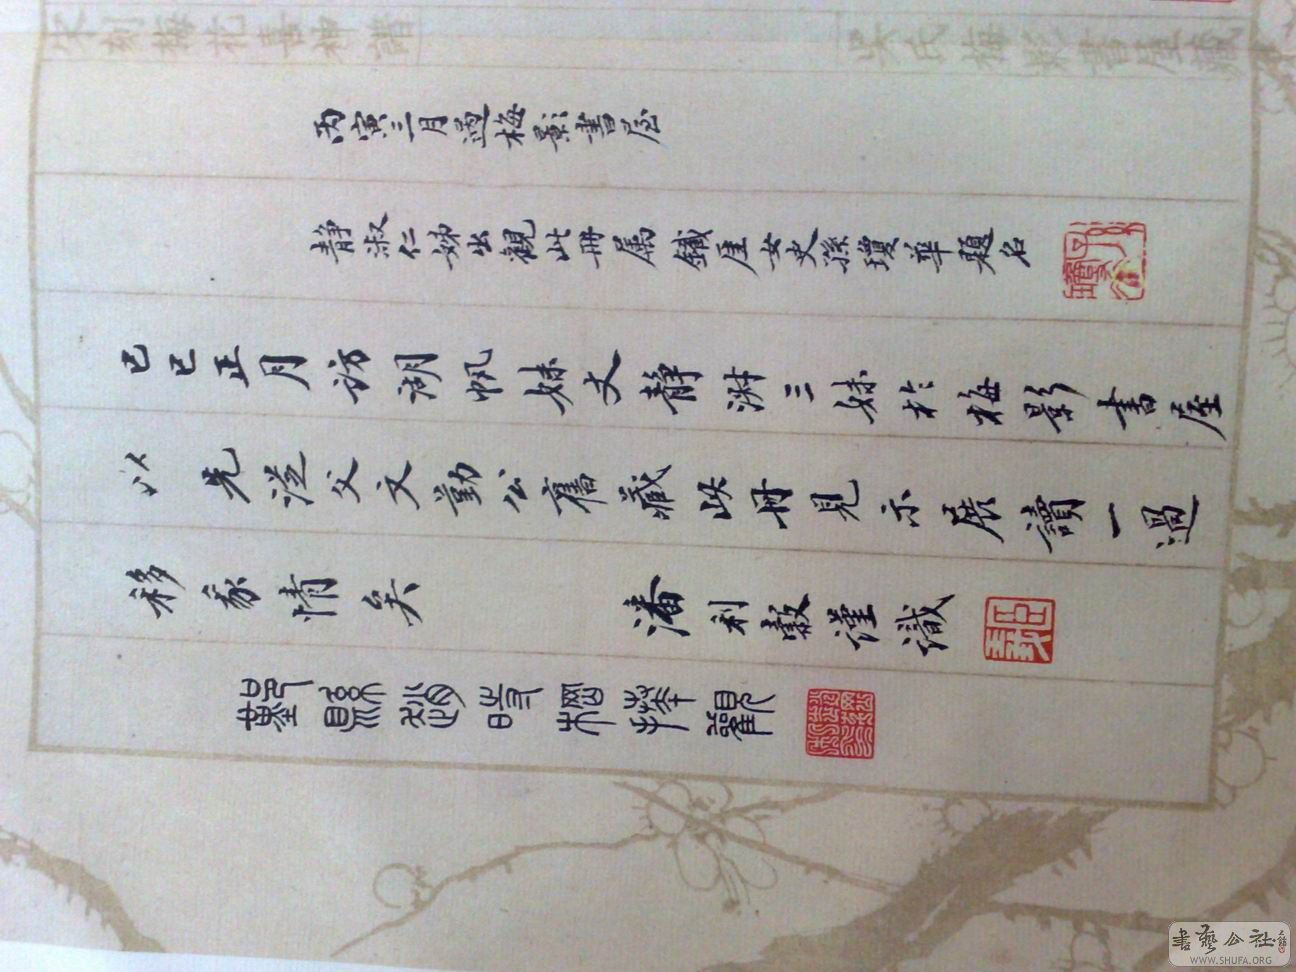 宋刻梅花喜神譜
吳氏梅影書屋藏
丙寅三月過梅影書屋
靜淑仁姊出觀此冊屬 鐵厓女史孫瓊華題名
己巳正月訪湖帆妹丈靜淑三妹於梅影書屋
以 先從父文勤公舊藏此冊見示展讀一過
移我情矣 潘利穀謹識
鄞縣趙時棡拜觀
書藝公社
WWW.SHUFA.ORG